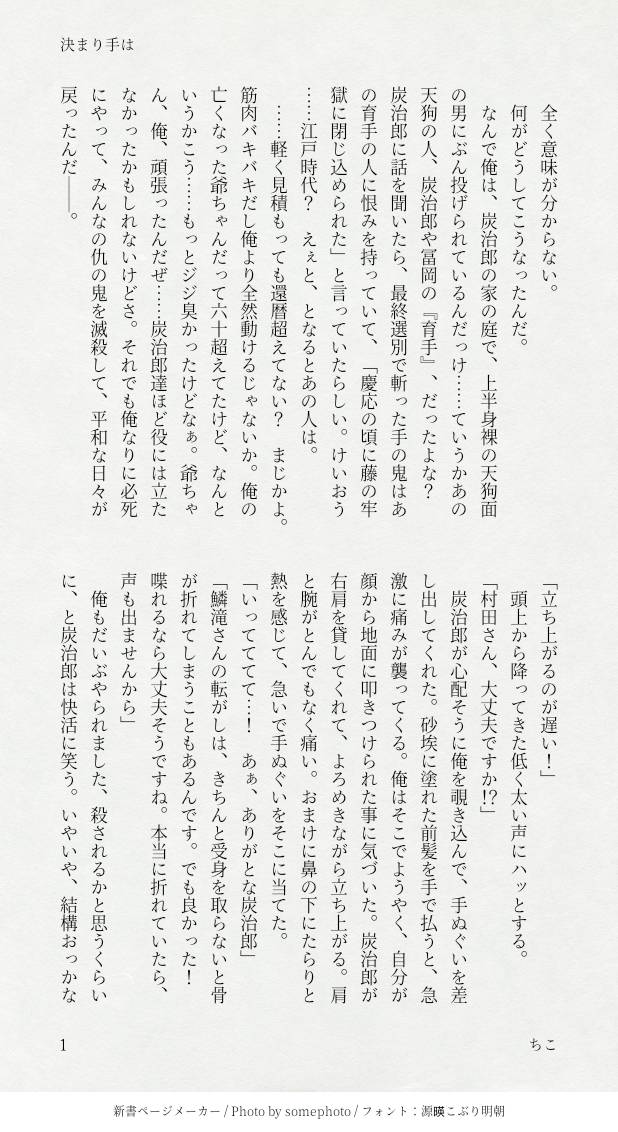 決まり手は
全く意味が分からない。
何がどうしてこうなったんだ。
なんで俺は、炭治郎の家の庭で、上半身裸の天狗面
の男にぶん投げられているんだっけ……ていうかあの
天狗の人、炭治郎や冨岡の『育手』、だったよな?
炭治郎に話を聞いたら、最終選別で斬った手の鬼はあ
の育手の人に恨みを持っていて、「慶応の頃に藤の牢
獄に閉じ込められた」と言っていたらしい。けいおう
……江戸時代? えぇと、となるとあの人は。
……軽く見積もっても還暦超えてない? まじかよ。
筋肉バキバキだし俺より全然動けるじゃないか。俺の
亡くなった爺ちゃんだって六十超えてたけど、なんと
いうかこう……もっとジジ臭かったけどなぁ。爺ちゃ
ん、俺、頑張ったんだぜ……炭治郎達ほど役には立た
なかったかもしれないけどさ。それでも俺なりに必死
にやって、みんなの仇の鬼を滅殺して、平和な日々が
戻ったんだ――。
「立ち上がるのが遅い!」
頭上から降ってきた低く太い声にハッとする。
「村田さん、大丈夫ですか!?」
炭治郎が心配そうに俺を覗き込んで、手ぬぐいを差
し出してくれた。砂埃に塗れた前髪を手で払うと、急
激に痛みが襲ってくる。俺はそこでようやく、自分が
顔から地面に叩きつけられた事に気づいた。炭治郎が
右肩を貸してくれて、よろめきながら立ち上がる。肩
と腕がとんでもなく痛い。おまけに鼻の下にたらりと
熱を感じて、急いで手ぬぐいをそこに当てた。
「いってててて…! あぁ、ありがとな炭治郎」
「鱗滝さんの転がしは、きちんと受身を取らないと骨
が折れてしまうこともあるんです。でも良かった!
喋れるなら大丈夫そうですね。本当に折れていたら、
声も出ませんから」
俺もだいぶやられました、殺されるかと思うくらい
に、と炭治郎は快活に笑う。いやいや、結構おっかな
1
ちこ
新書ページメーカー / Photo by somephoto / フォント：源暎こぶり明朝